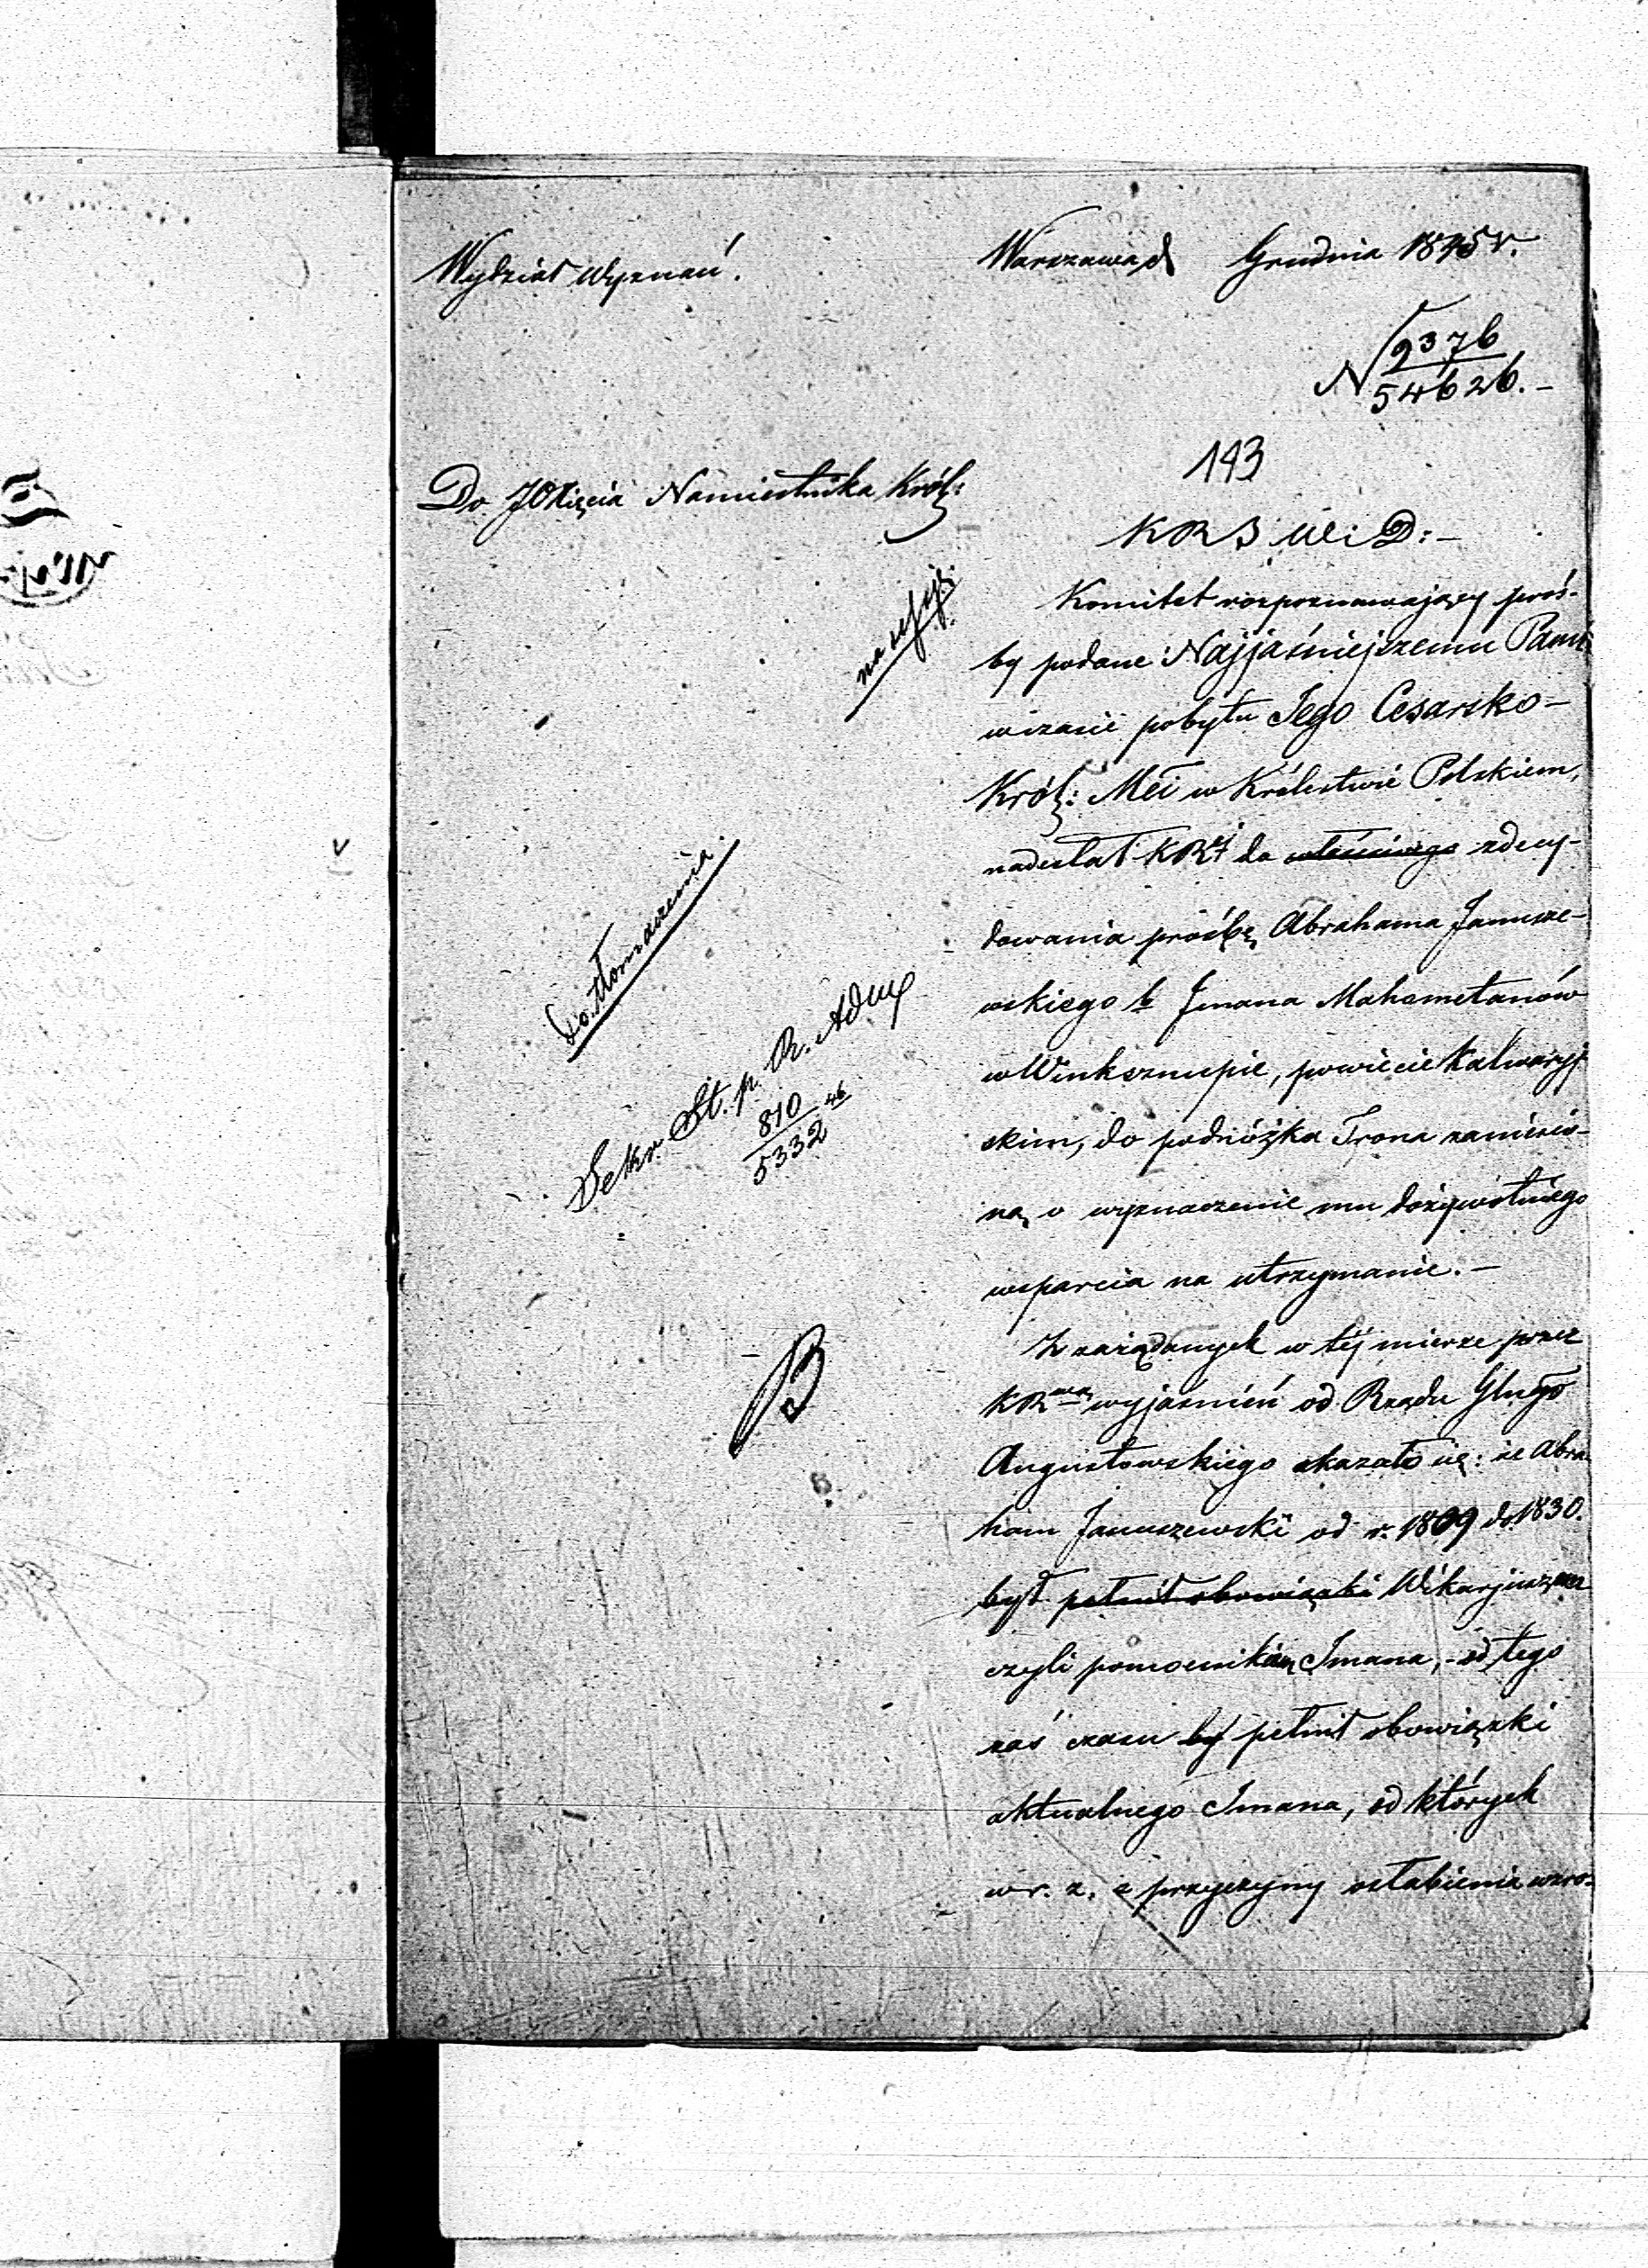 Wydział Wyznań.
Warszawa d Grudnia 1845 r.
N 9376
54626.-
193
Do JOXięcia Namiestnika Król:
KRSW i D:-
Komitet rozpoznawający proś-
by podane Najjaśniejszemu Panu
w czasie pobytu Jego Cesarsko-
Król: Mci w Królestwie Polskiem,
nadesłał KRz do właściwego zdecy-
dowania prośbę Abrahama Janusze-
wskiego b Jmana Mahometanów
w Winksznupie, powiecie Kalwaryj-
skim, do podnóżka Tronu zaniesio-
ną, o wyznaczenie mu dożywotniego
wsparcia na utrzymanie.-
Z zażądanych w téj mierze przez
KR wyjaśnień od Rządu Gubgo
Augustowskiego okazało się: że Abra-
ham Januszewski od r. 1809 do 1830.
był pełnił obowiązki Wikarjuszem
czyli pomocnikiem Jmana,- od tego
zaś czasu by pełnił obowiązki
aktualnego Imana, od których
w r. z. z przyczyny osłabienia wzro-
do tłomaczenia
Sekr. St. p. R. Adm
810 46
5332